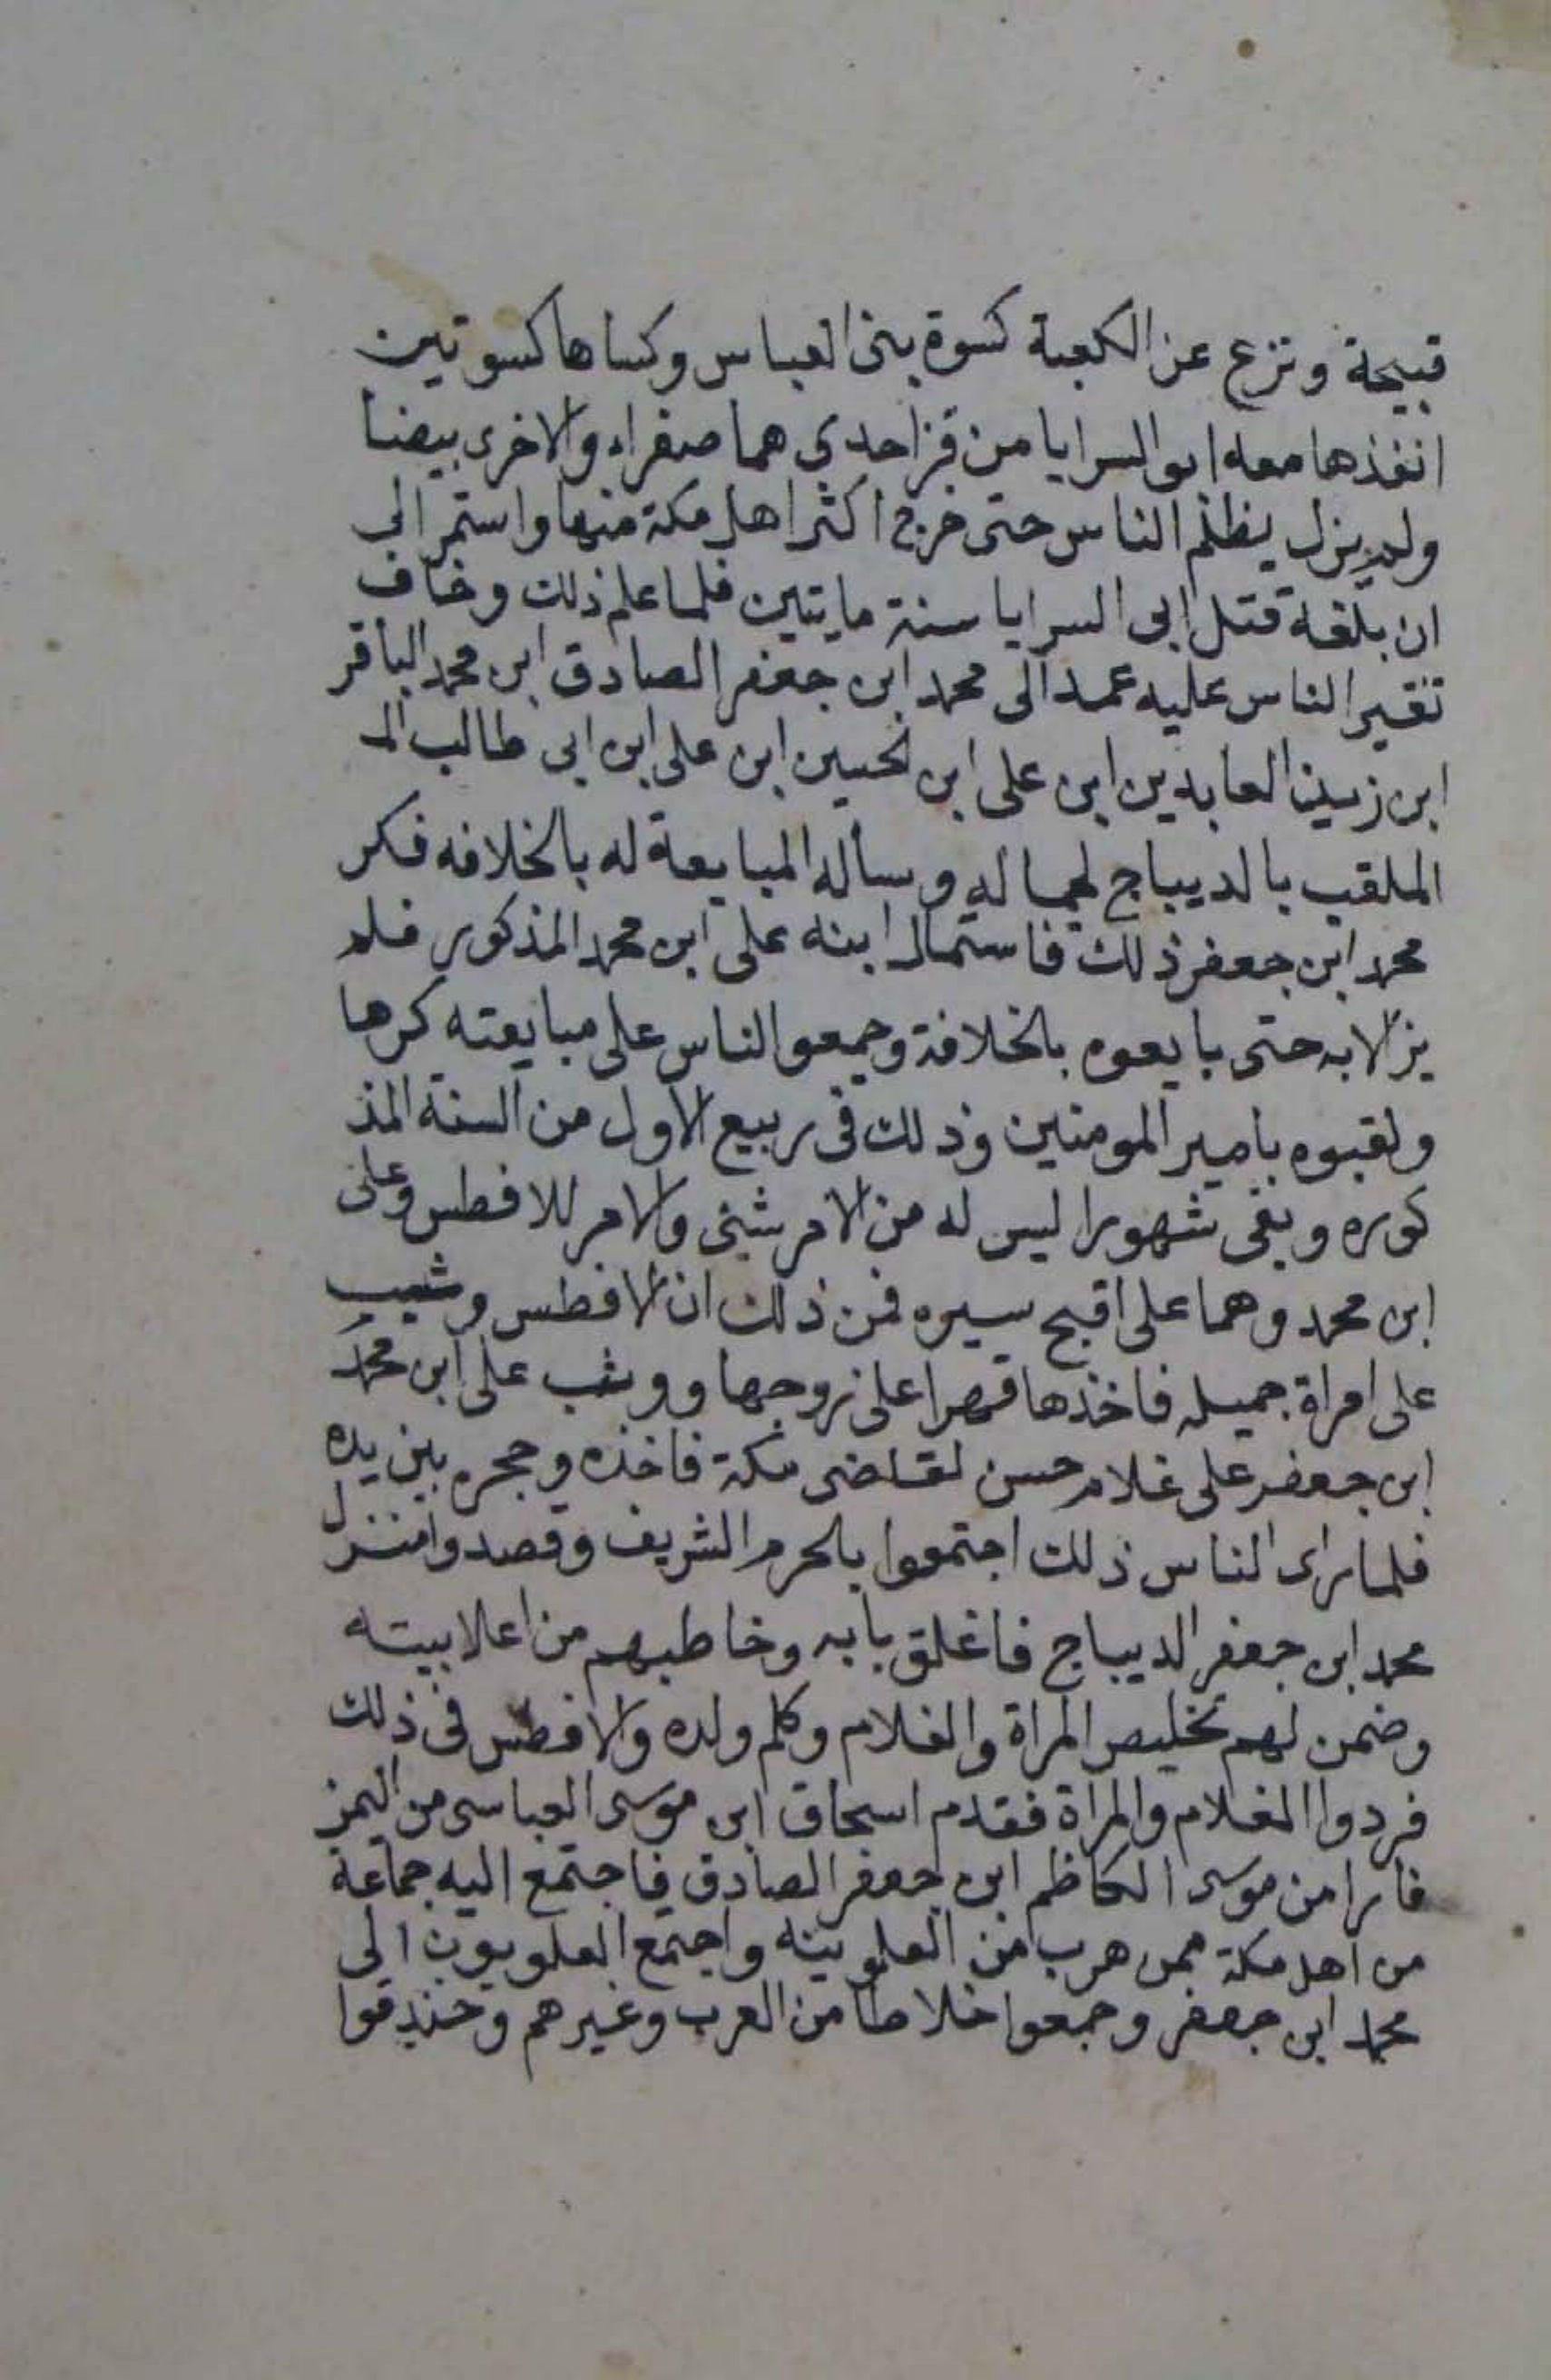 قبيحة ونزع عن الكعبة كسوة بنى العباس وكساها كسوتين
انفذها معه ابو السرايا من قز احدي هما صفراء والاخرى بيضا
ولم يزل يظلم الناس حتى خرج اكثر اهل مكة منها واستمر الى
ان بلغه قتل ابى السرايا سنة مايتين فلما علم ذلك وخاف
تغير الناس عليه عمد الى محمد ابن جعفر الصادق ابن محمد الباقر
ابن زين العابدين ابن على ابن الحسين ابن على ابن ابى طالب الـ
الملقب بالديباج لجماله وسأله المبايعة له بالخلافه فكر
محمد ابن جعفر ذلك فاستمال ابنه على ابن محمد المذكور فلم
يزالا به حتى بايعوه بالخلافة وجمعو الناس على مبايعته كرها
ولقبوه بامير المومنين وذلك فى ربيع الاول من السنة المذ
كوره وبقى شهورا ليس له من الامر شئى والامر للافطس وعلى
ابن محمد وهما على اقبح سيره فمن ذلك ان الافطس وشب
على امراة جميله فاخذها قهرا على زوجها ووشب على ابن محمد
ابن جعفر على غلام حسن لقاضى مكة فاخذه وحجره بين يده
فلما راى الناس ذلك اجتمعوا بالحرم الشريف وقصدوا منزل
محمد ابن جعفر الديباج فاغلق بابه وخاطبهم من اعلا بيته
وضمن لهم تخليص المراة والغلام وكلم ولده والافطس فى ذلك
فردوا الغلام والمراة فقدم اسحاق ابن موسى العباسى من اليمن
فارا من موسى الكاظم ابن جعفر الصادق فاجتمع اليه جماعة
من اهل مكة ممن هرب من العلوينه واجتمع العلويون الى
محمد ابن جعفر وجمعوا خلاطا من العرب وغيرهم وخندقوا